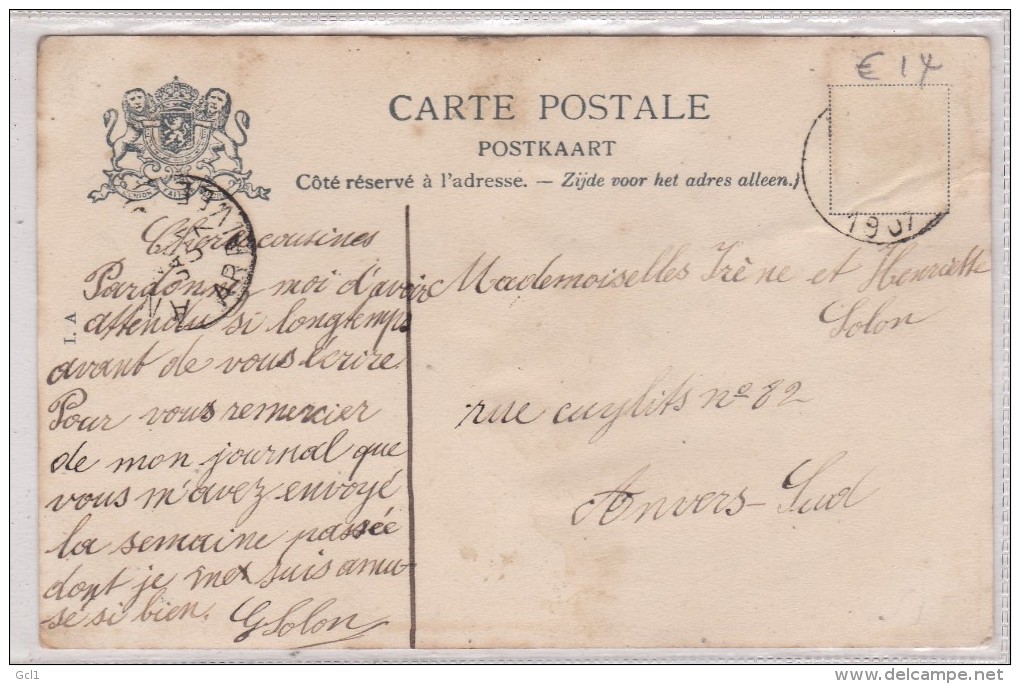 € 14
CARTE POSTALE
POSTKAART
Côté réservé à l'adresse. — Zijde voor het adres alleen.
1907
I. A
Chères cousines
Pardonnez moi d'avoir
attendu si longtemps
avant de vous écrire.
Pour vous remercier
de mon journal que
vous m'avez envoyé
la semaine passée
dont je me suis amu-
sé si bien.
G Solon
Mademoiselles Irène et Henriette
Solon
rue cuylits nº 82
Anvers-Sud
Gcl1
delcampe.net